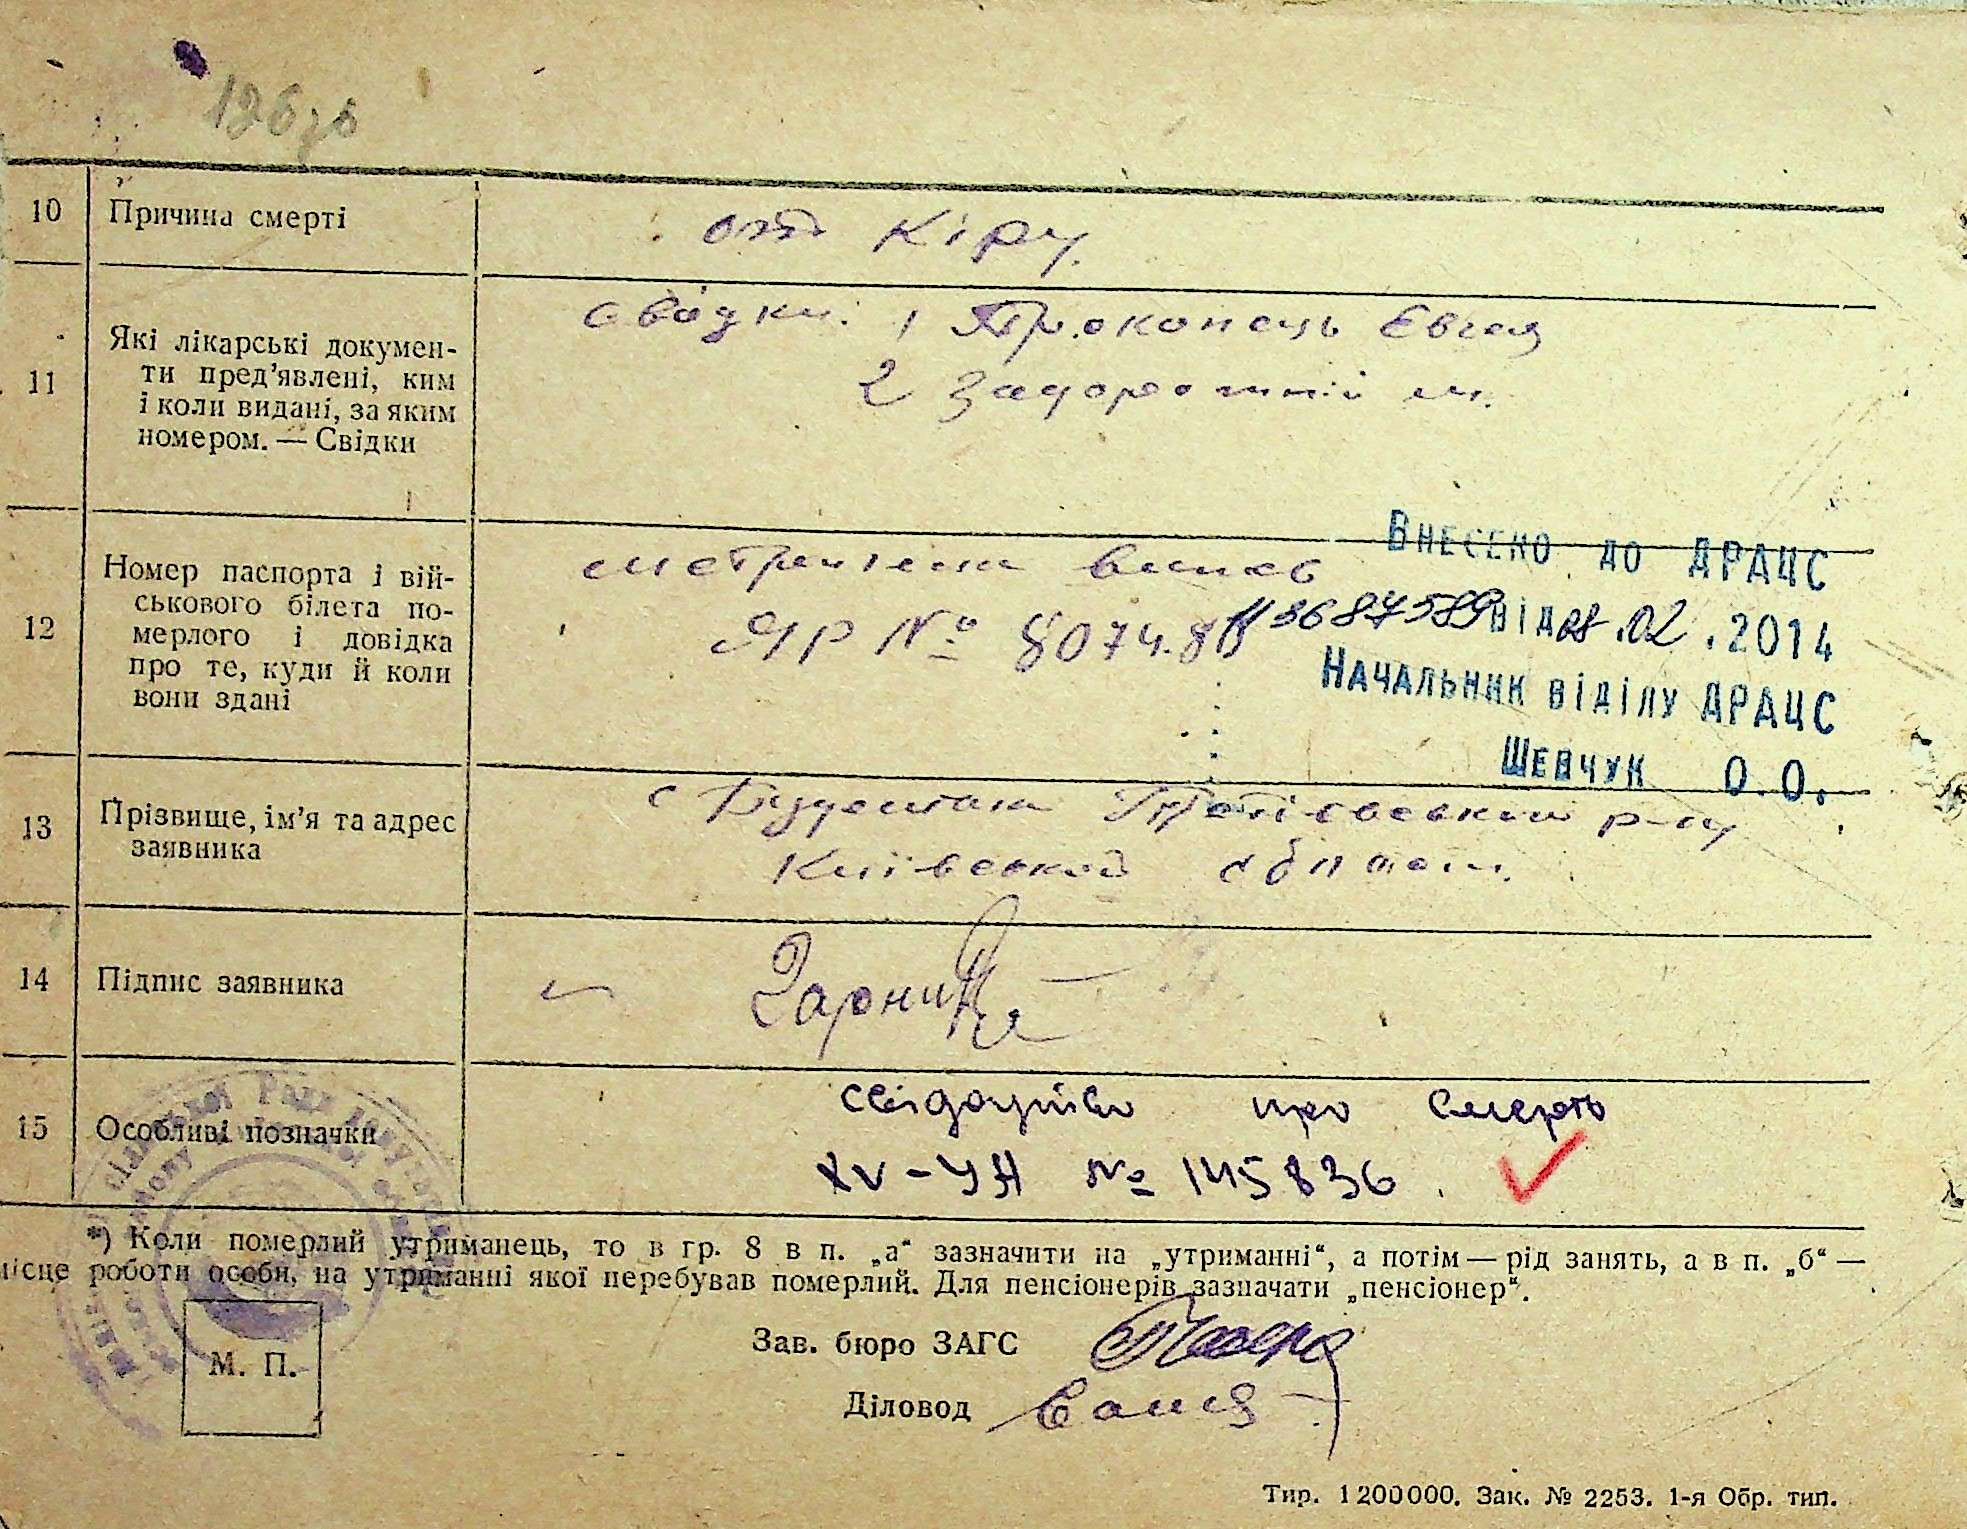 126зв
10 Причина смерті
от Кіру.
11 Які лікарські докумен-
ти пред’явлені, ким
і коли видані, за яким
номером. — Свідки
свідки: 1 Прокопець Євген
2
12 Номер паспорта і вій-
ськового білета по-
мерлого і довідка
про те, куди й коли
вони здані
метричкна
ЯР № 8074.8
Внесено до ДРАЦС
3687589 від 28.02.2014
Начальник відділу ДРАЦС
Шевчук О.О.
13 Прізвище, ім’я та адрес
заявника
с р-ну
Київської області.
14 Підпис заявника
15 Особливі позначки
свідоцтво про смерть
XV-УН № 145836.
*) Коли померлий утриманець, то в гр. 8 в п. „а“ зазначити на „утриманні“, а потім — рід занять, а в п. „б“ —
місце роботи особи, на утриманні якої перебував померлий. Для пенсіонерів зазначати „пенсіонер“.
М. П.
Зав. бюро ЗАГС
Діловод
Тир. 1200000. Зак. № 2253. 1-я Обр. тип.